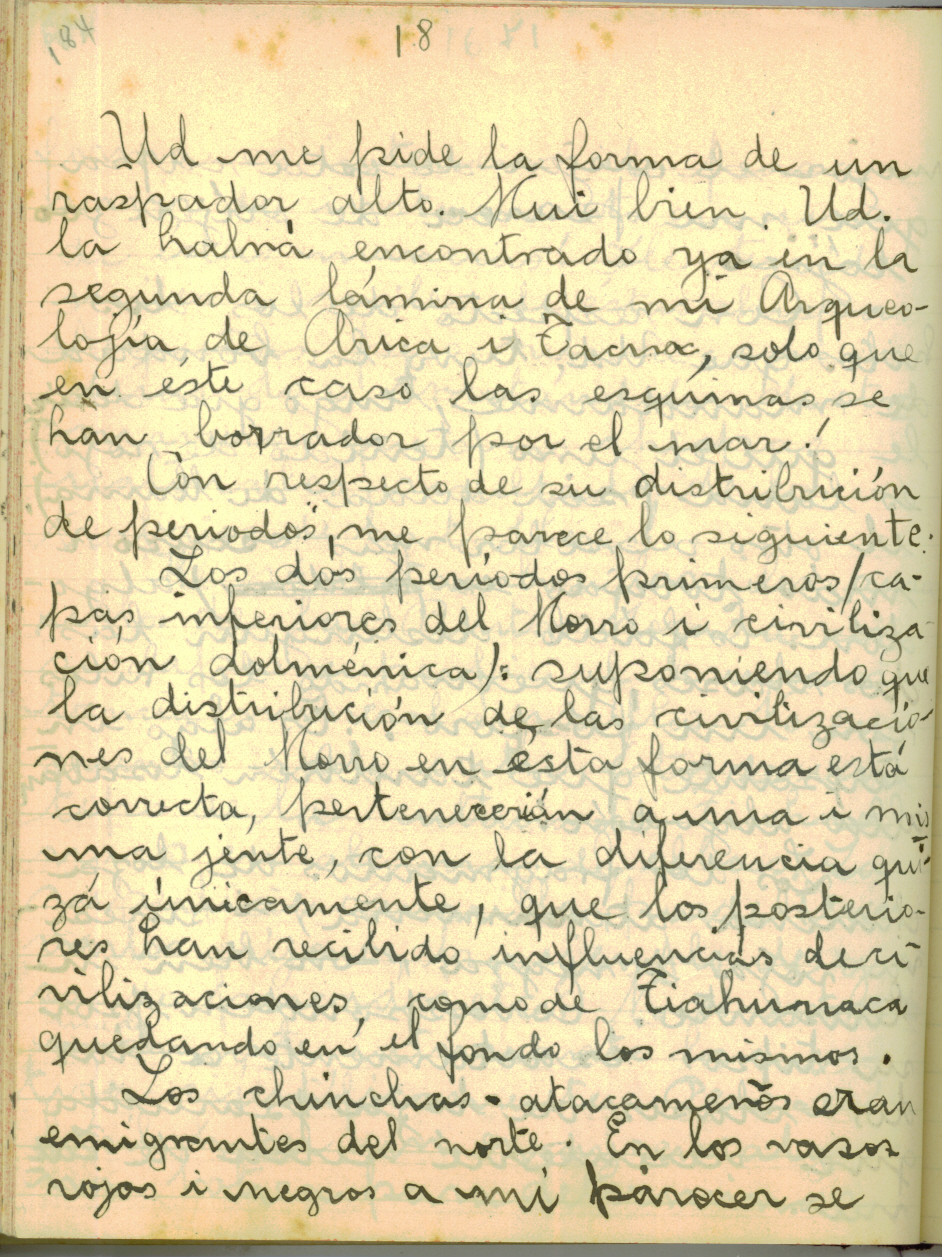 184
18
Ud me pide la forma de un
raspador alto. Mui bien Ud.
la habrá encontrado ya en la
segunda lámina de mi Arqueo-
lojía de Arica i Tacna, solo que
en éste caso las esquinas se
han borrador por el mar!
Con respecto de su distribución
de periodos, me parece lo siguiente.
Los dos períodos primeros/ca-
pas inferiores del Morro i civiliza-
ción dolménica): suponiendo que
la distribución de las civilizacio-
nes del Morro en ésta forma está
correcta, pertenecerían a una i mis
ma jente, con la diferencia qui-
zá únicamente, que los posterio-
res han recibido influencias de ci-
vilizaciones, como de Tiahunaca
quedando en el fondo los mismos.
Los chinchas-atacameños eran
emigrantes del norte. En los vasos
rojos i negros a mi parecer se